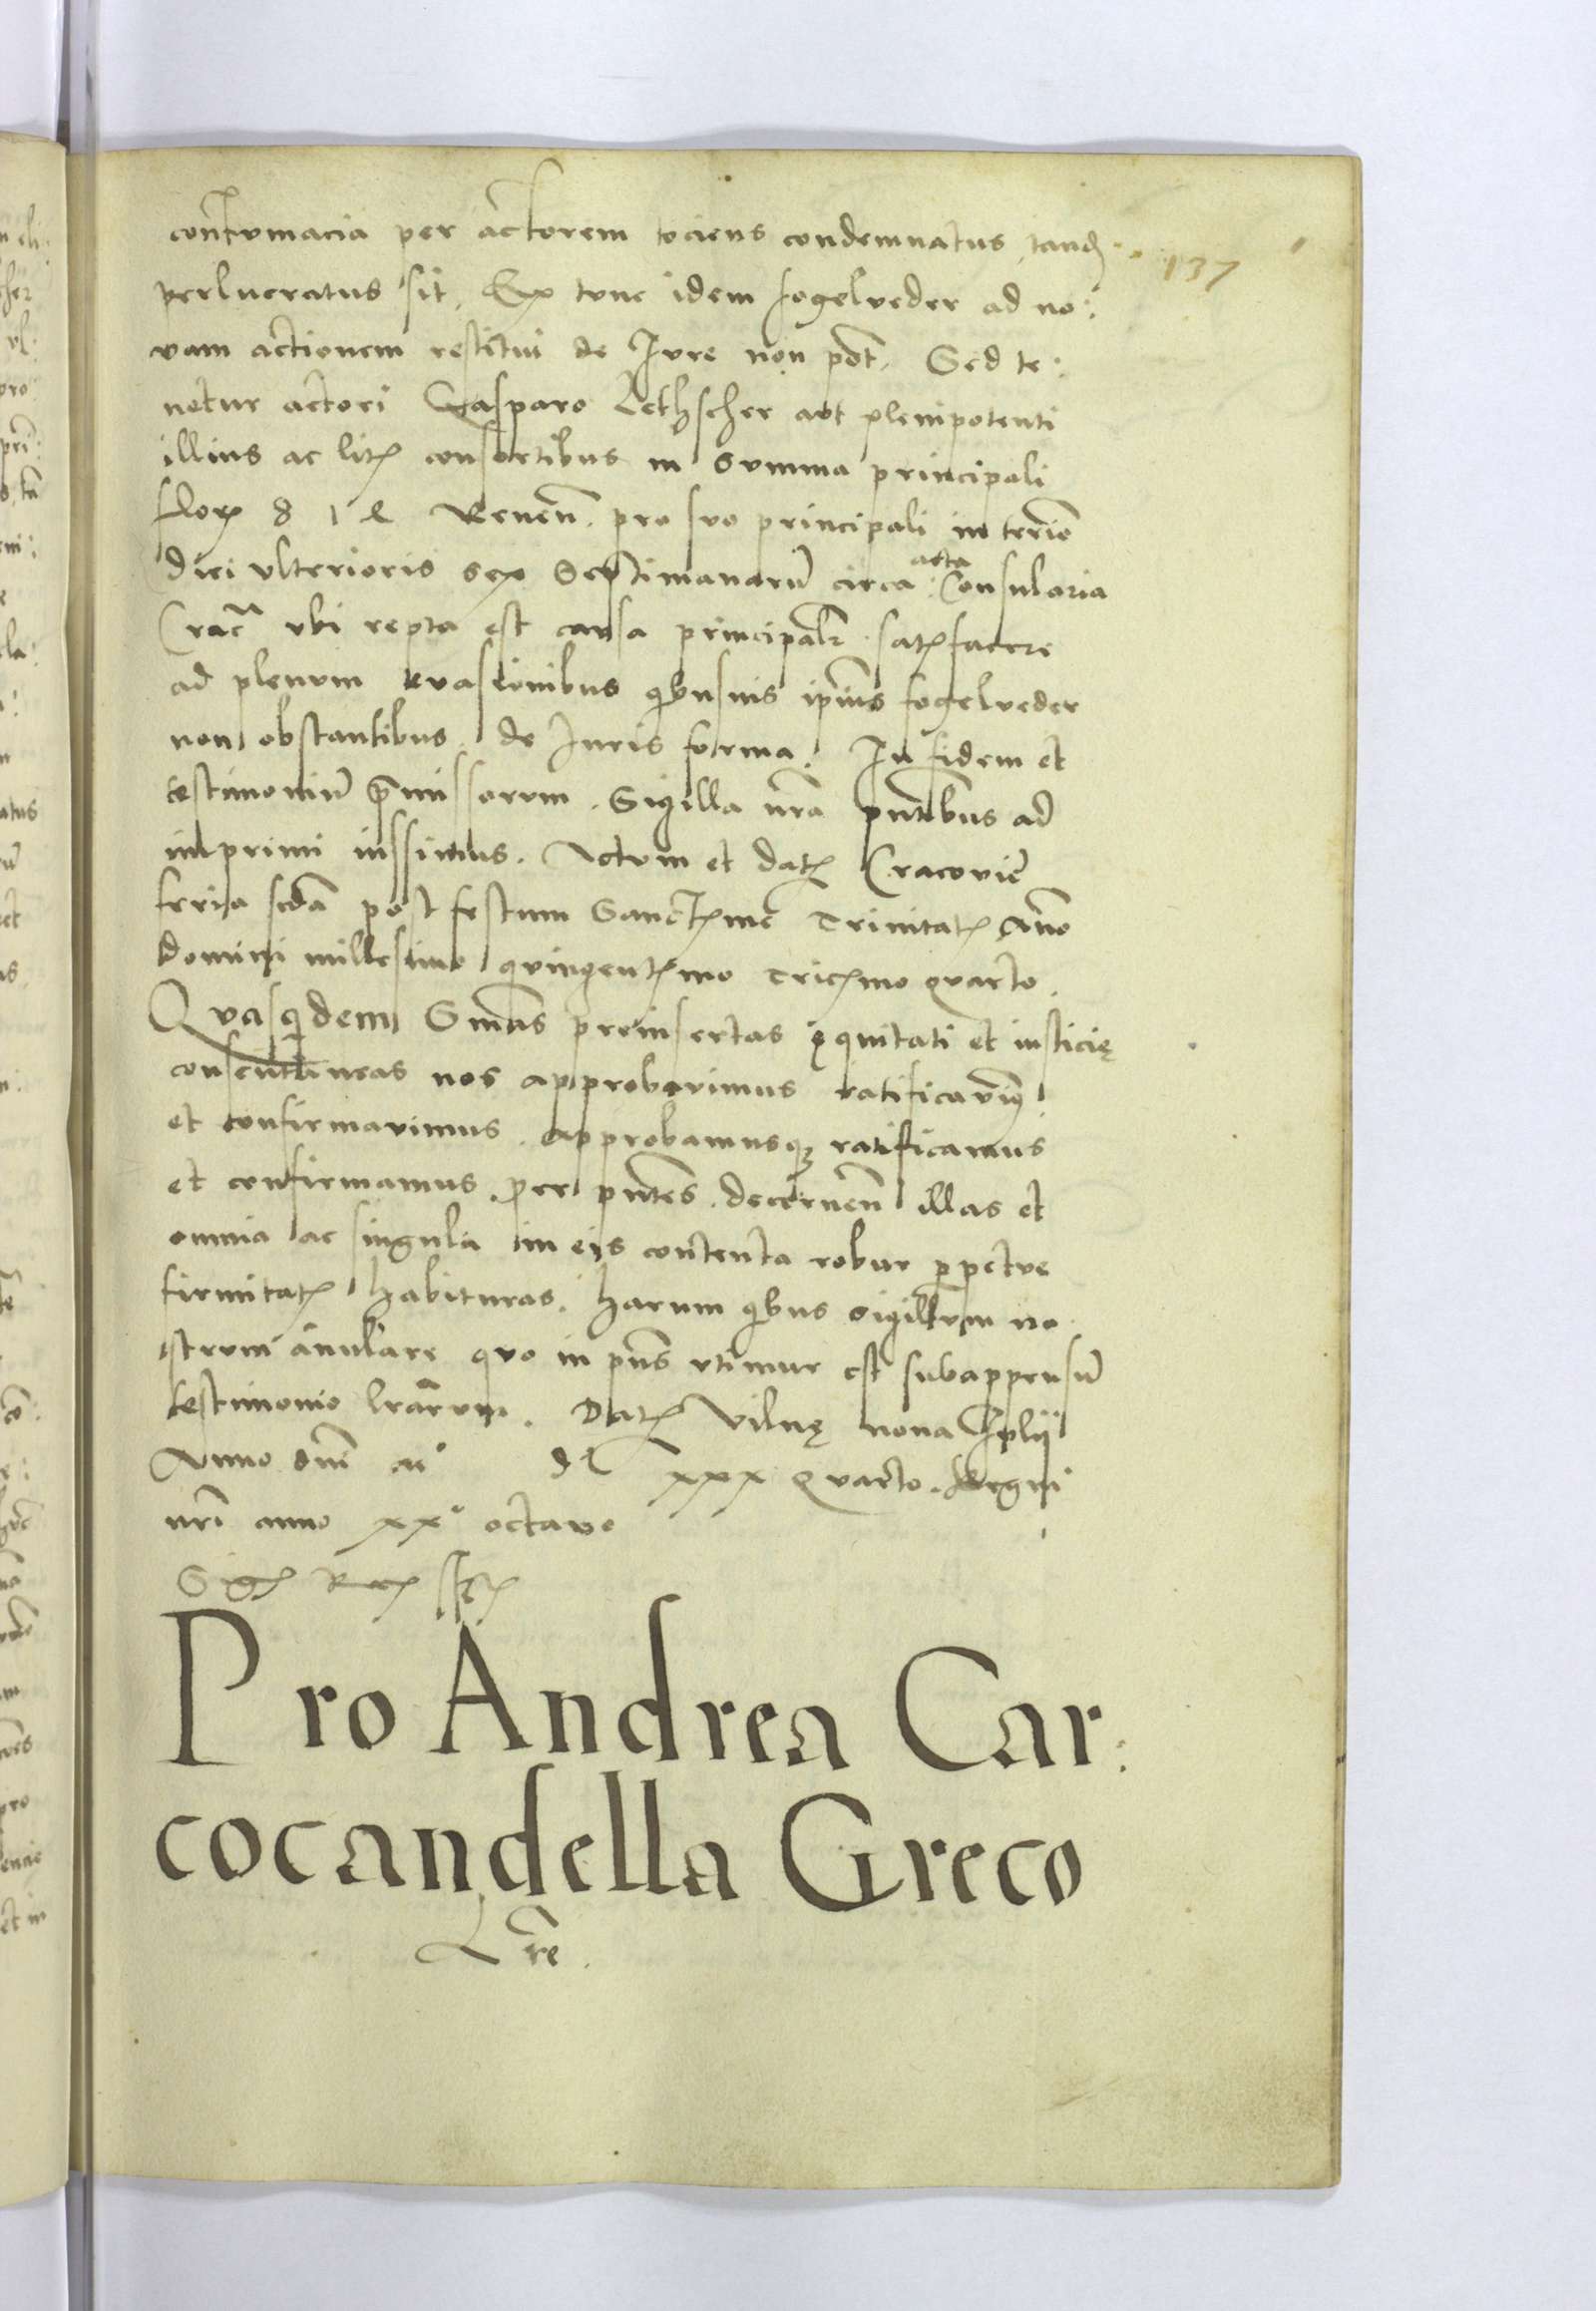 contumacia per actorem tociens condemnatus, tandẽ
137
perlucratus sit. Ex tunc idem fogelveder ad no:
vam actionem restitui de Iure non põt. Sed te:
netur actori Gasparo Lethscher aut plenipotenti
illius ac litis consortibus in summa principali
flor 8 1 Renen. pro suo principali in termĩo
diei ulterioris sex Septimanarũ circa acta Consularia
Crac̃ ubi cepta est causa principalr satisfacere
ad plenum evasionibus qbusuis ipĩus fogelveder
non obstantibus. de Iuris forma. In fidem et
testimoniũ p̃missorum. Sigilla nr̃a pñtibus ad
imprimi iussimus. Actum et datẽ Cracovie
feria scd̃a post festum Sanctissime Trinitatis Año
domini millesimo quingentesimo Tricesimo quarto.
Quasqdem Sñias preinsertas ęquitati et iusticię
consentaneas nos approbavimus ratificavimꝰ
et confirmavimus. approbamusqꝫ ratificamus
et confirmamus. per pñtes. decernen̄ illas et
omnia ac singula in eis contenta robur ꝑpetue
firmitatis habituras. harum qbus sigillum no
strum anulare quo in pñs utimur est subappensũ
testimonio lrãrum. Datẽ Vilnę nona Iulii
Anno dñi Mº D xxx Quarto. Regni
nr̃i anno xxº octavo
Pro Andrea Car:
cocandella Greco
Lr̃e.